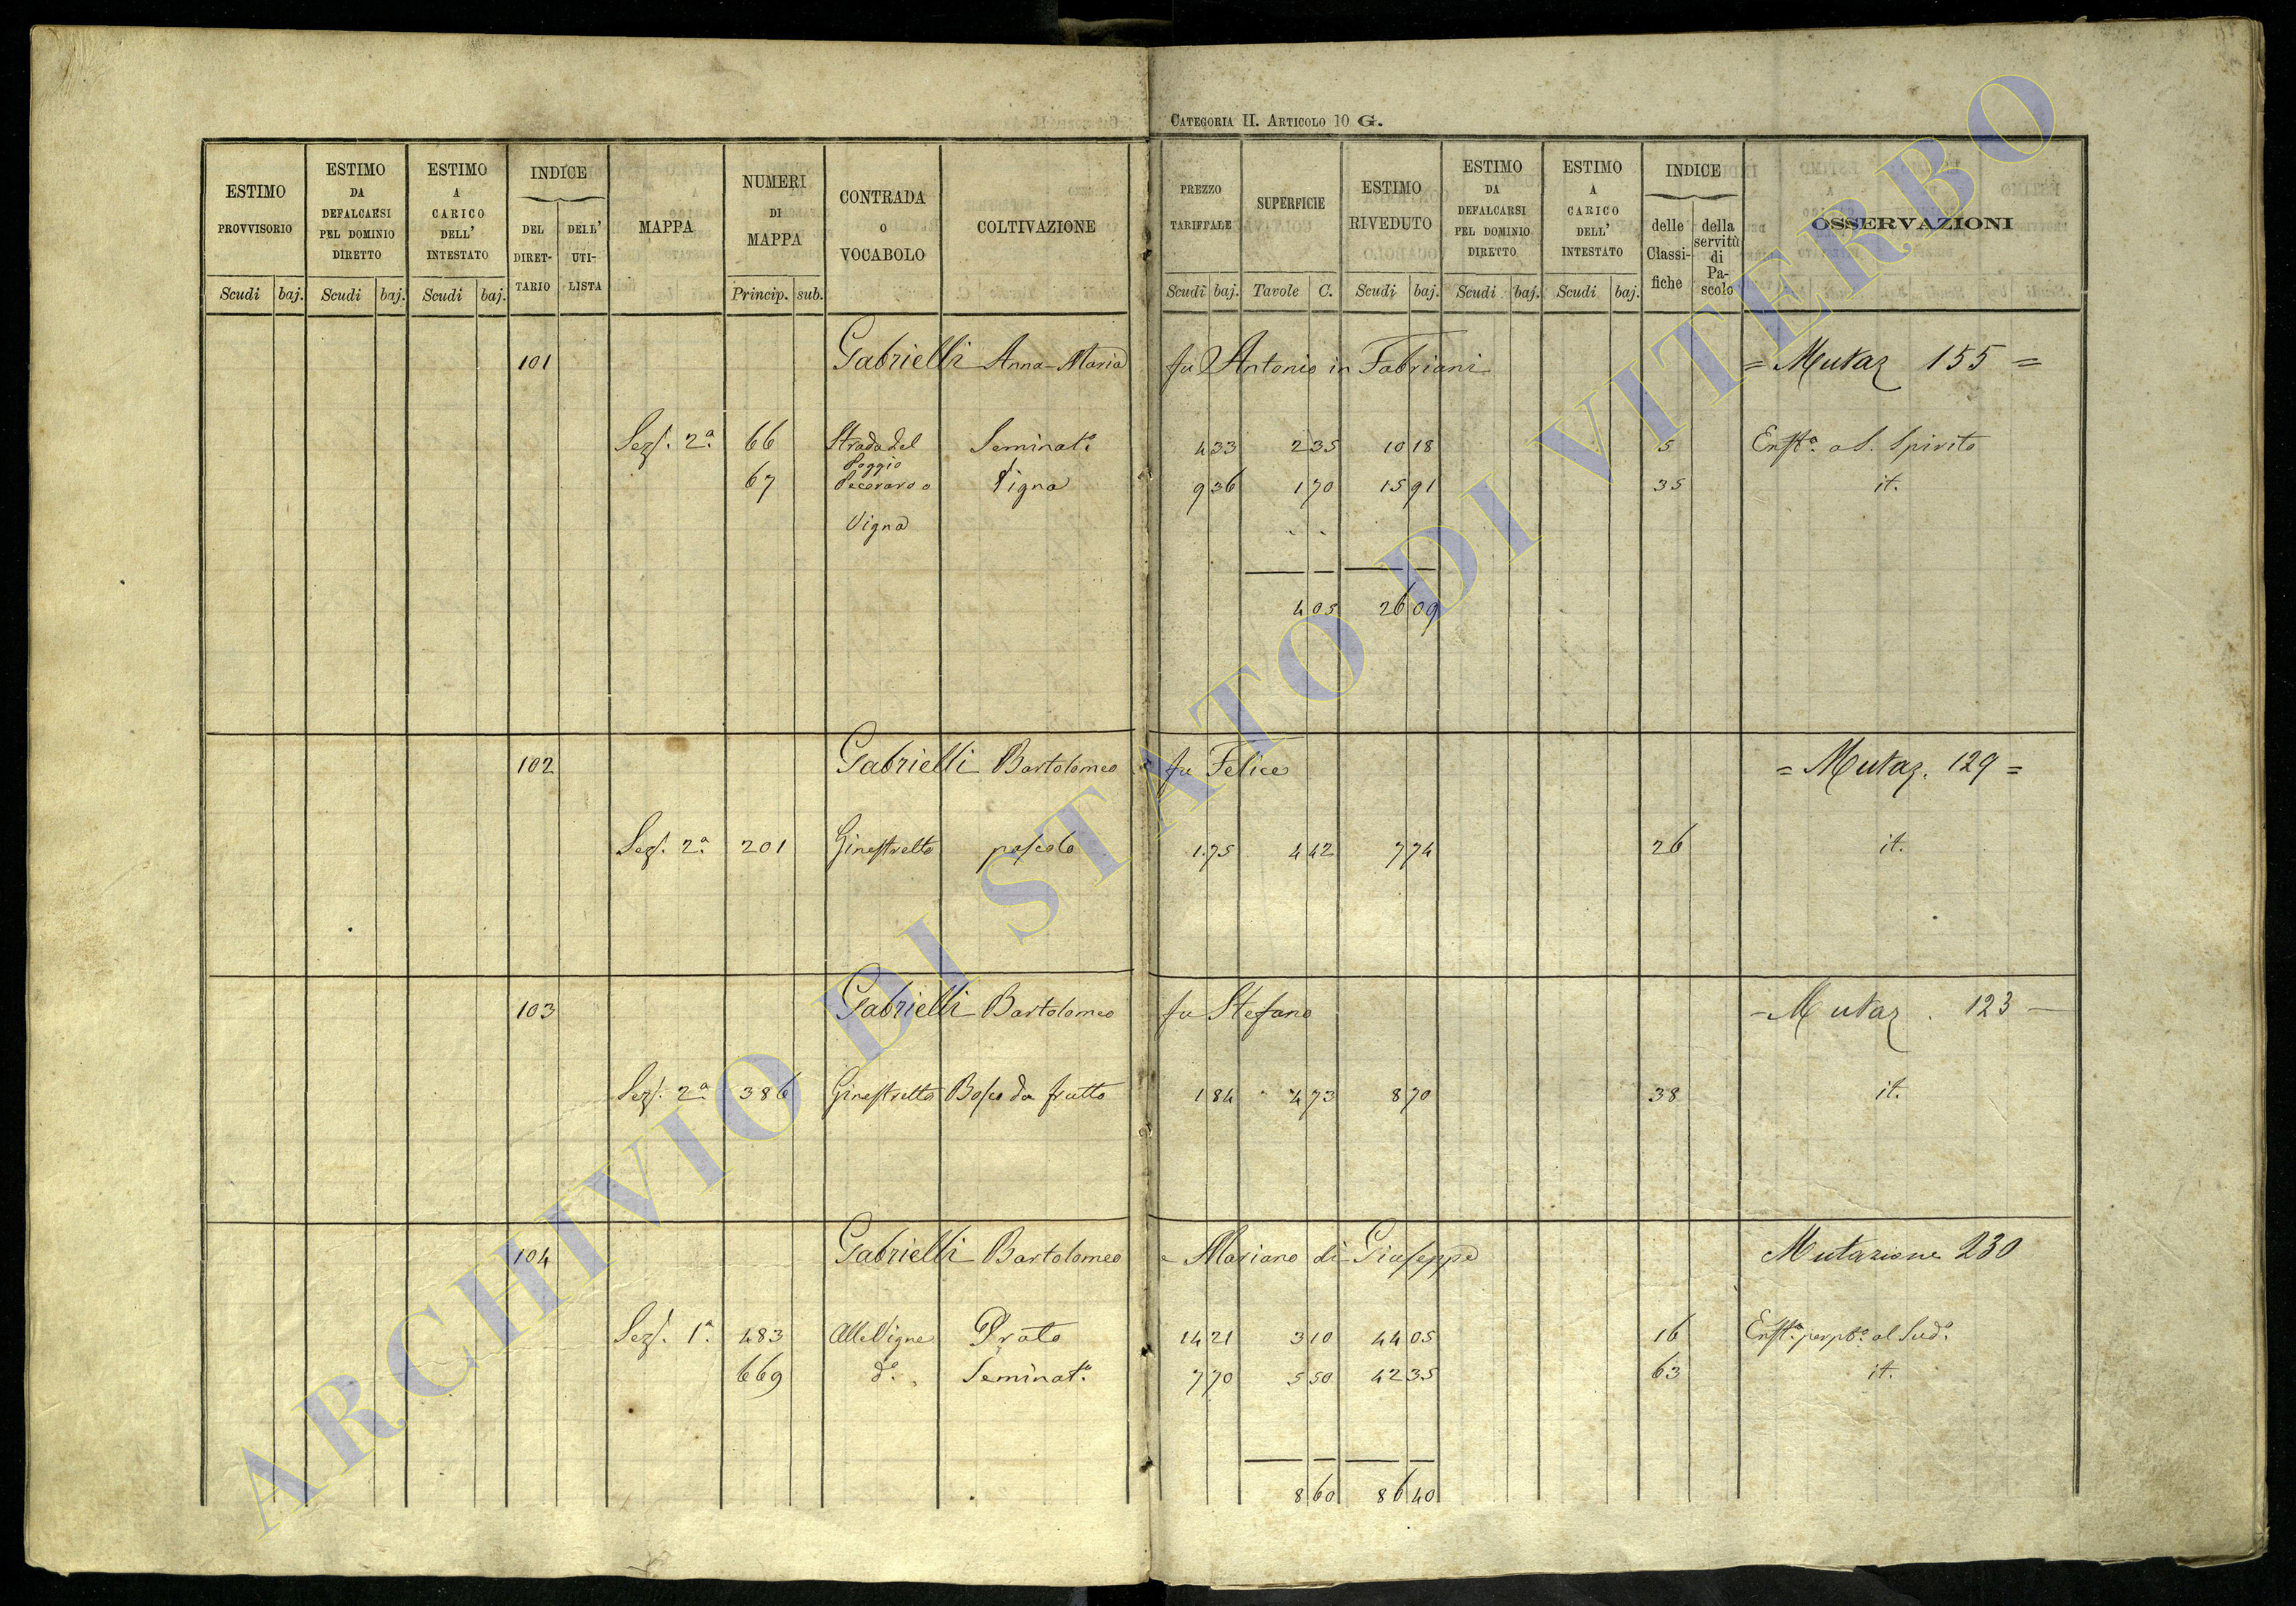 CATEGORIA II. ARTICOLO 10 G.
ESTIMO PROVVISORIO Scudi baj.
ESTIMO DA DEFALCARSI PEL DOMINIO DIRETTO Scudi baj.
ESTIMO A CARICO DELL' INTESTATO Scudi baj.
INDICE DEL DIRET-TARIO DELL' UTI-LISTA
MAPPA
NUMERI DI MAPPA Princip. sub.
CONTRADA O VOCABOLO
COLTIVAZIONE
PREZZO TARIFFALE Scudi baj.
SUPERFICIE Tavole C.
ESTIMO RIVEDUTO Scudi baj.
ESTIMO DA DEFALCARSI PEL DOMINIO DIRETTO Scudi baj.
ESTIMO A CARICO DELL' INTESTATO Scudi baj.
INDICE delle Classi-fiche della servitù di Pa-scolo
OSSERVAZIONI
101 Gabrielli Anna-Maria fu Antonio in Fabriani = Mutaz 155 =
Sez. 2ª 66 Strada del Poggio Seminatº 4 33 2 35 10 18 5 Enftª a S. Spirito
67 Pecoraro o Vigna 9 36 1 70 15 91 35 it.
Vigna
4 05 26 09
102 Gabrielli Bartolomeo fu Felice = Mutaz. 129 =
Sez. 2ª 201 Ginestretto pascolo 1.75 4 42 7 74 26 it.
103 Gabrielli Bartolomeo fu Stefano - Mutaz. 123 -
Sez. 2ª 386 Ginestretto Bosco da frutto 1 84 4 73 8 70 38 it.
104 Gabrielli Bartolomeo e Mariano di Giuseppe Mutazione 230
Sez. 1ª 483 Alle Vigne Prato 14 21 3 10 44 05 16 Enftª perpª al Sudº
669 dº Seminatº 7 70 5 50 42 35 63 it.
8 60 86 40
ARCHIVIO DI STATO DI VITERBO